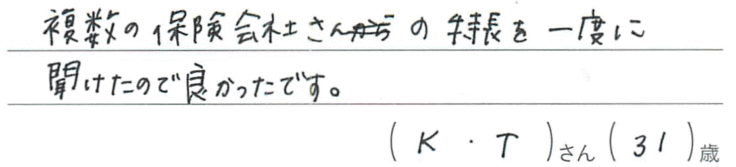 複数の保険会社さんの特長を一度に
聞けたので良かったです。
(K・T)さん(31)歳